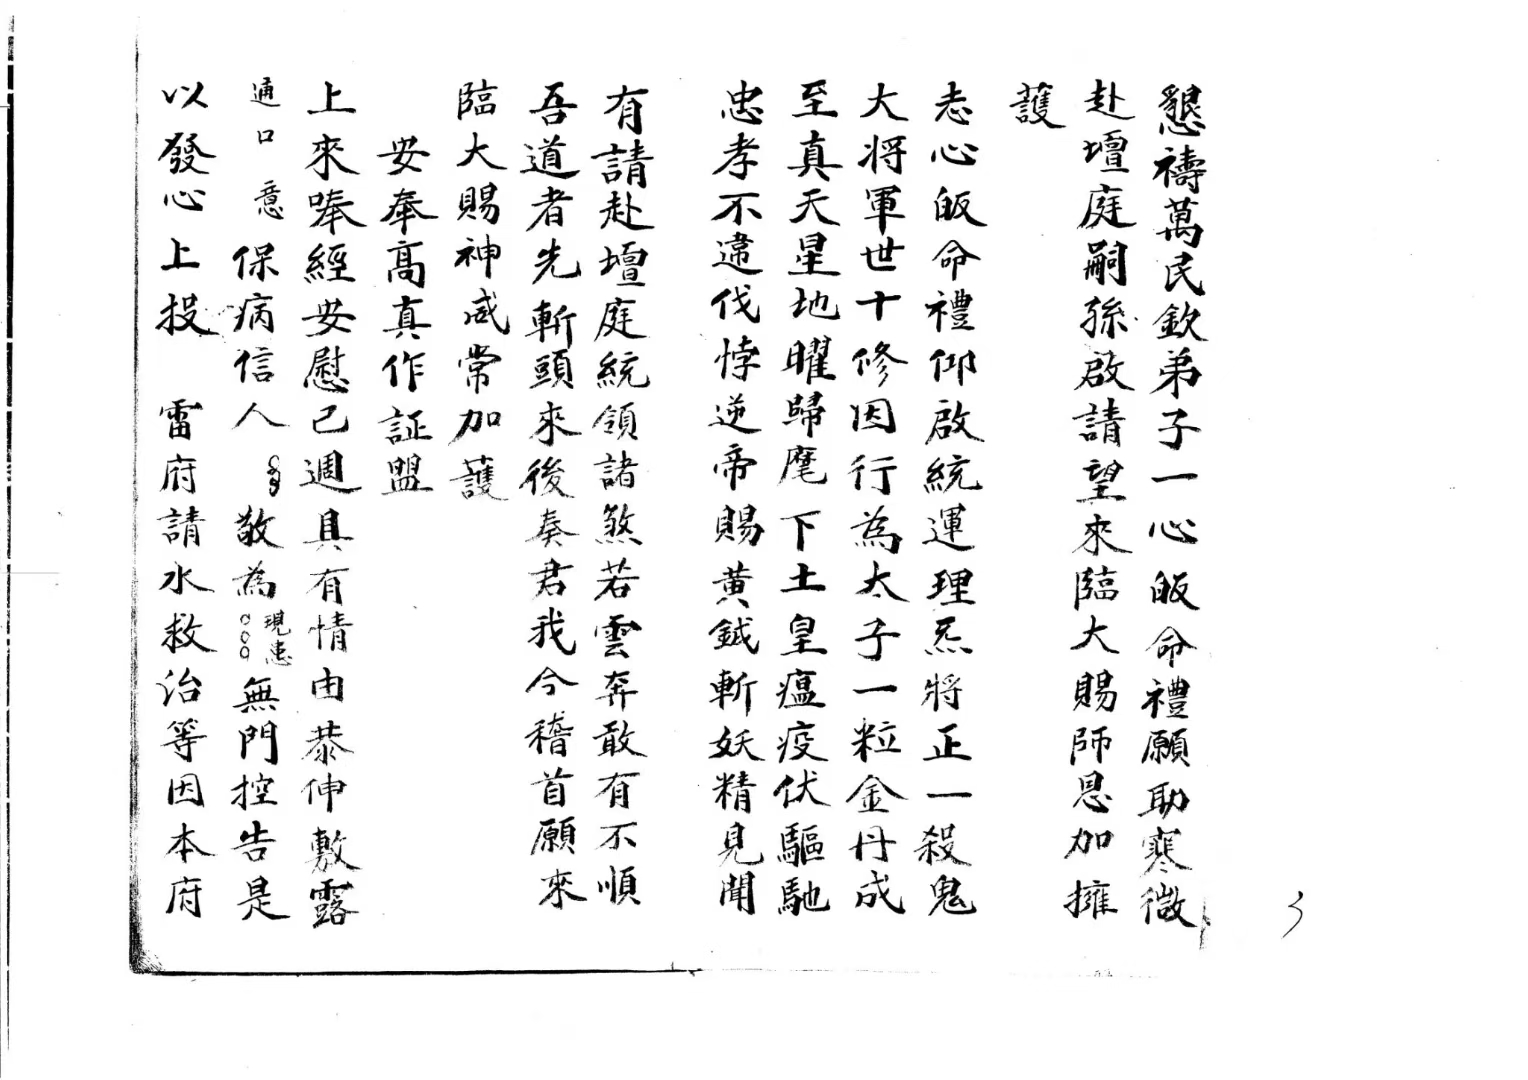 懇禱萬民欽弟子一心皈命禮願助寒微
赴壇庭嗣孫啟請望來臨大賜師恩加擁
護
志心皈命禮仰啟統運理炁將正一殺鬼
大將軍世十修因行為太子一粒金丹成
至真天星地曜歸麾下土皇瘟疫伏驅馳
忠孝不違伐悖逆帝賜黃鉞斬妖精見聞
有請赴壇庭統領諸煞若雲奔敢有不順
吾道者先斬頭來後奏君我今稽首願來
臨大賜神威常加護
安奉高真作証盟
上來唪經安慰已週具有情由恭伸敷露
通口意保病信人敬為現患無門控告是
以發心上投 雷府請水救治等因本府